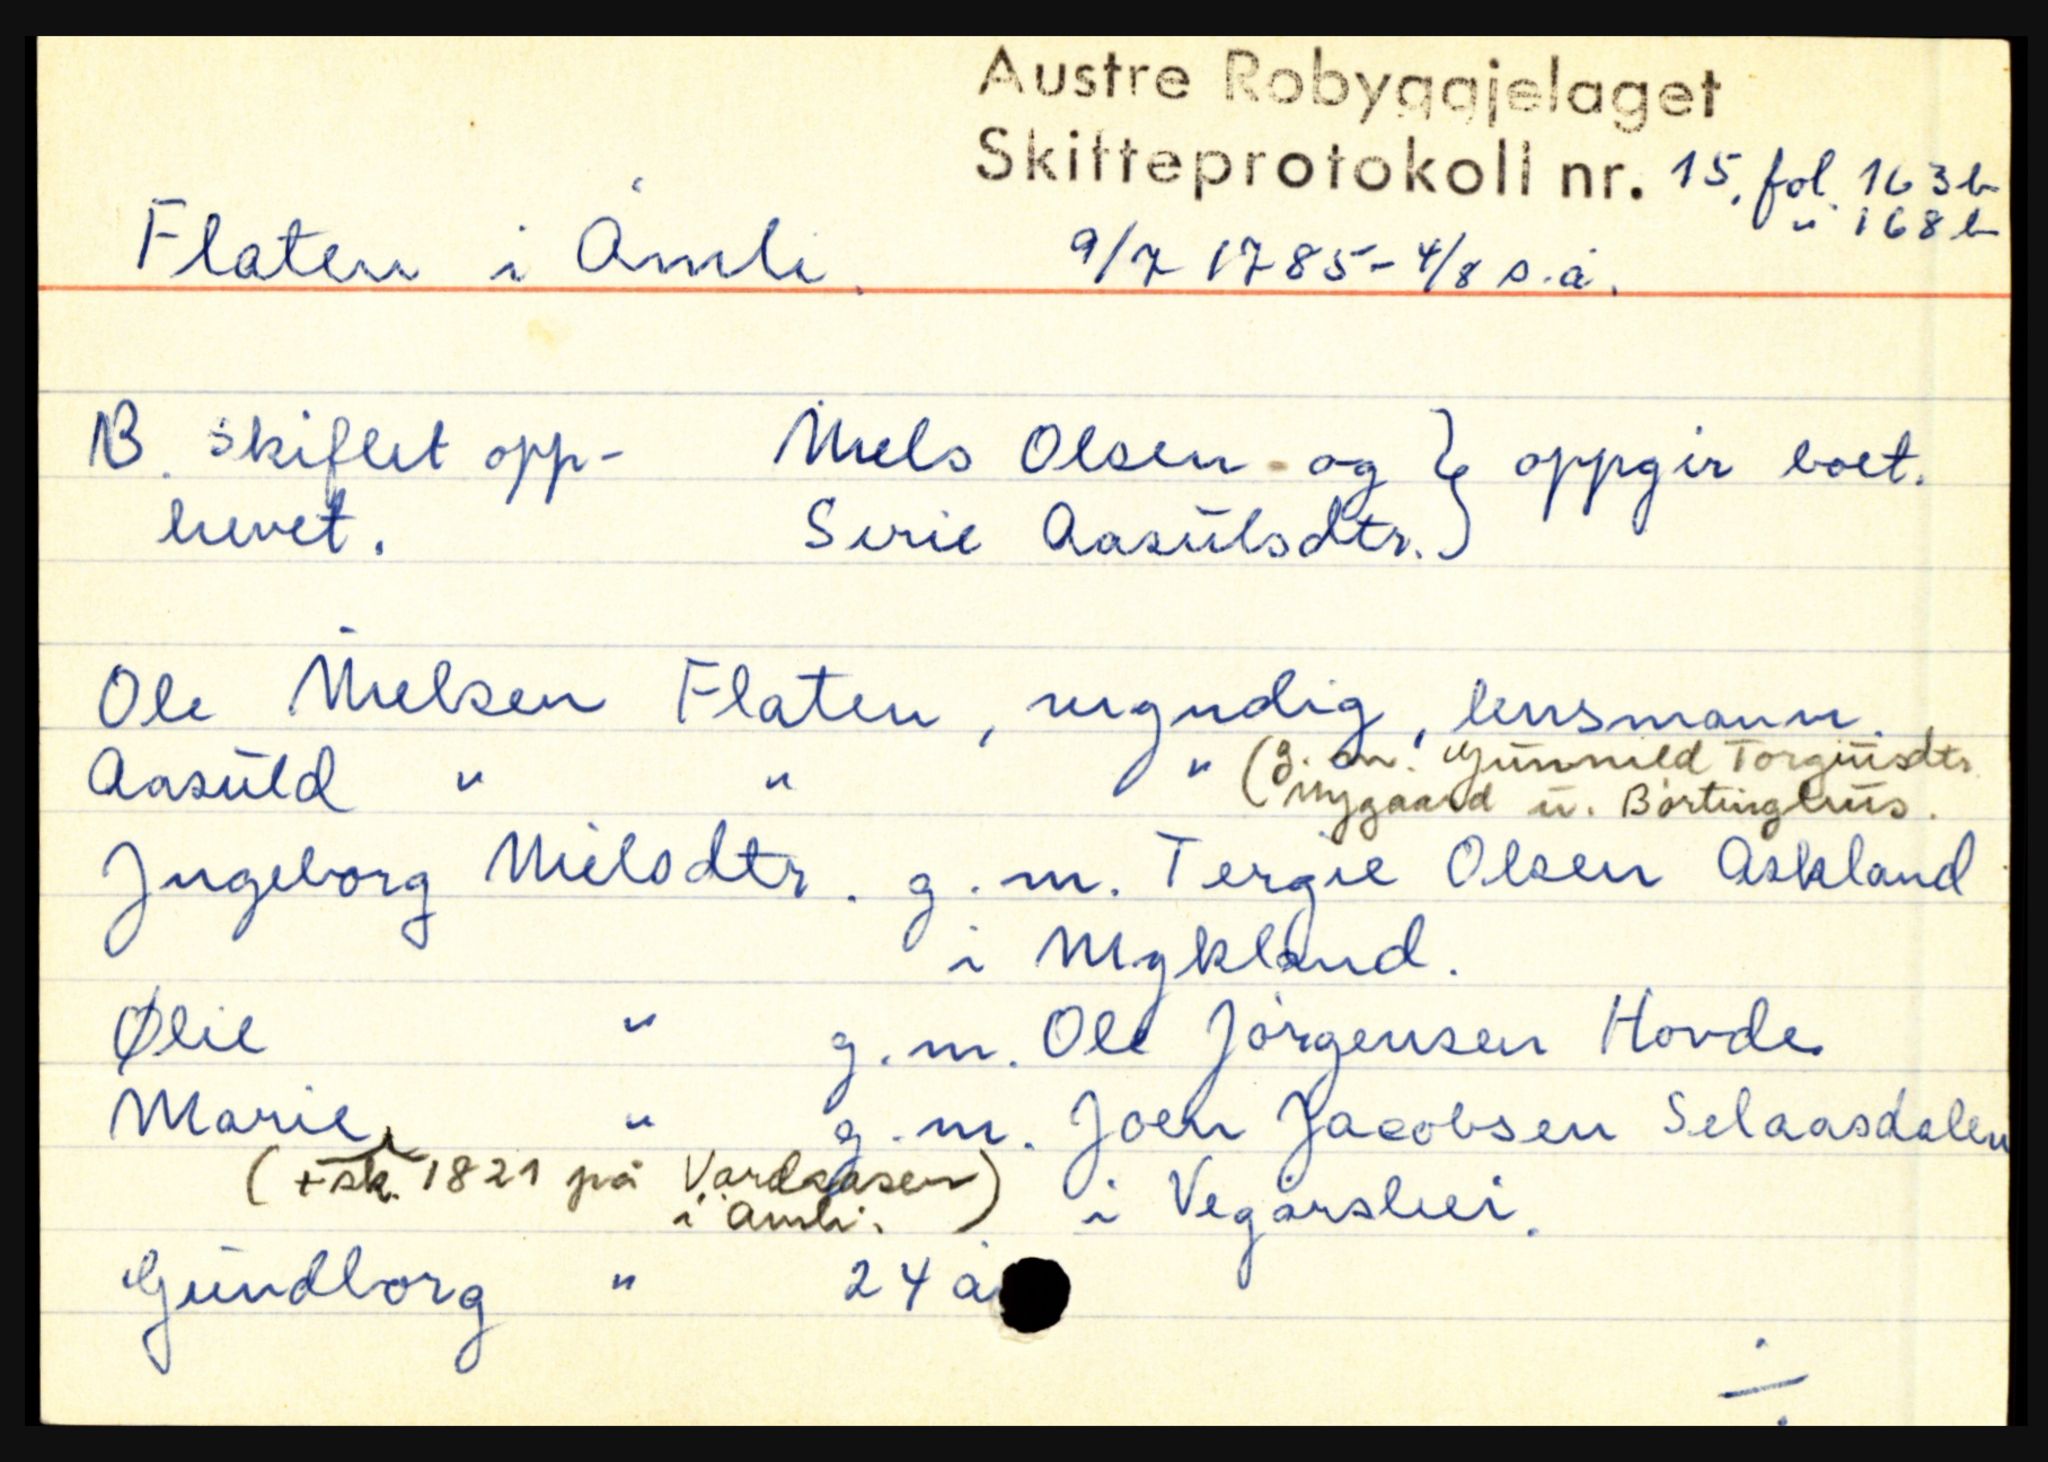 Austre Robyggjelaget
Skifteprotokoll nr. 15, fol. 163b
" 168b
Flaten i Åmli. 9/7 1785 - 4/8 s.å.
B. Skiftet opp- Niels Olsen og } oppgir boet.
hevet. Sirie Aasulsdtr.
Ole Nielsen Flaten, myndig, lensmann.
Aasuld " " " (g.m. Gunnild Torgusdtr.
Nygaard u. Børtinghus.
Ingeborg Nielsdtr. g.m. Tergie Olsen Askland
i Mykland.
Ølie " g.m. Ole Jørgensen Hovde.
Marie " g.m. Joen Jacobsen Selaasdalen
(+ sk. 1821 på Vardeåsen) i Vegårshei.
i Åmli.
Gundborg " 24 å
./.